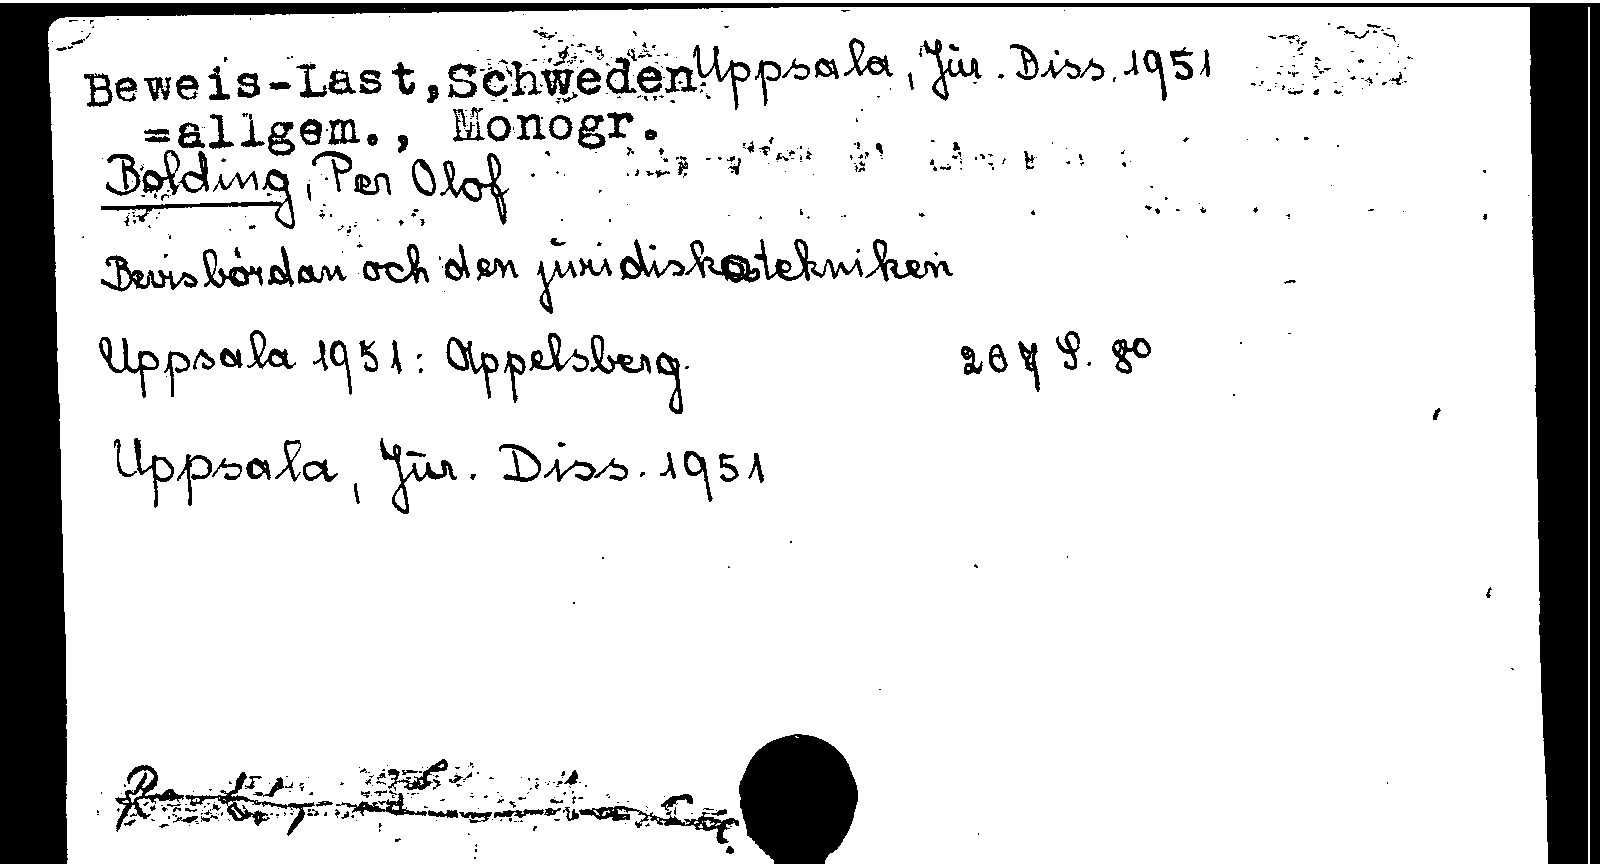 Beweis-Last,Schweden Uppsala, Jur. Diss. 1951
=allgem., Monogr.
Bolding, Per Olof
Bevisbördan och den juridiska tekniken
Uppsala 1951: Appelsberg. 207 S. 80
Uppsala, Jur. Diss. 1951